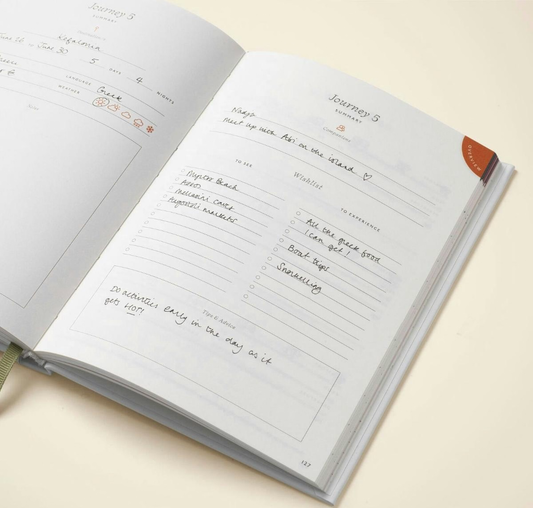 Journey 5
SUMMARY
Kefalonia
June 30
5 DAYS 4 NIGHTS
LANGUAGE Greek
WEATHER
Journey 5
SUMMARY
Companions
Nadya
Meet up with Abi on the island ♡
Wishlist
TO SEE
Beach
Assos
Melissani caves
Argostoli markets
TO EXPERIENCE
All the greek food
I can get!
Boat trips
Snorkelling
Tips & Advice
Do activities early in the day as it
gets HOT!
OVERVIEW
137